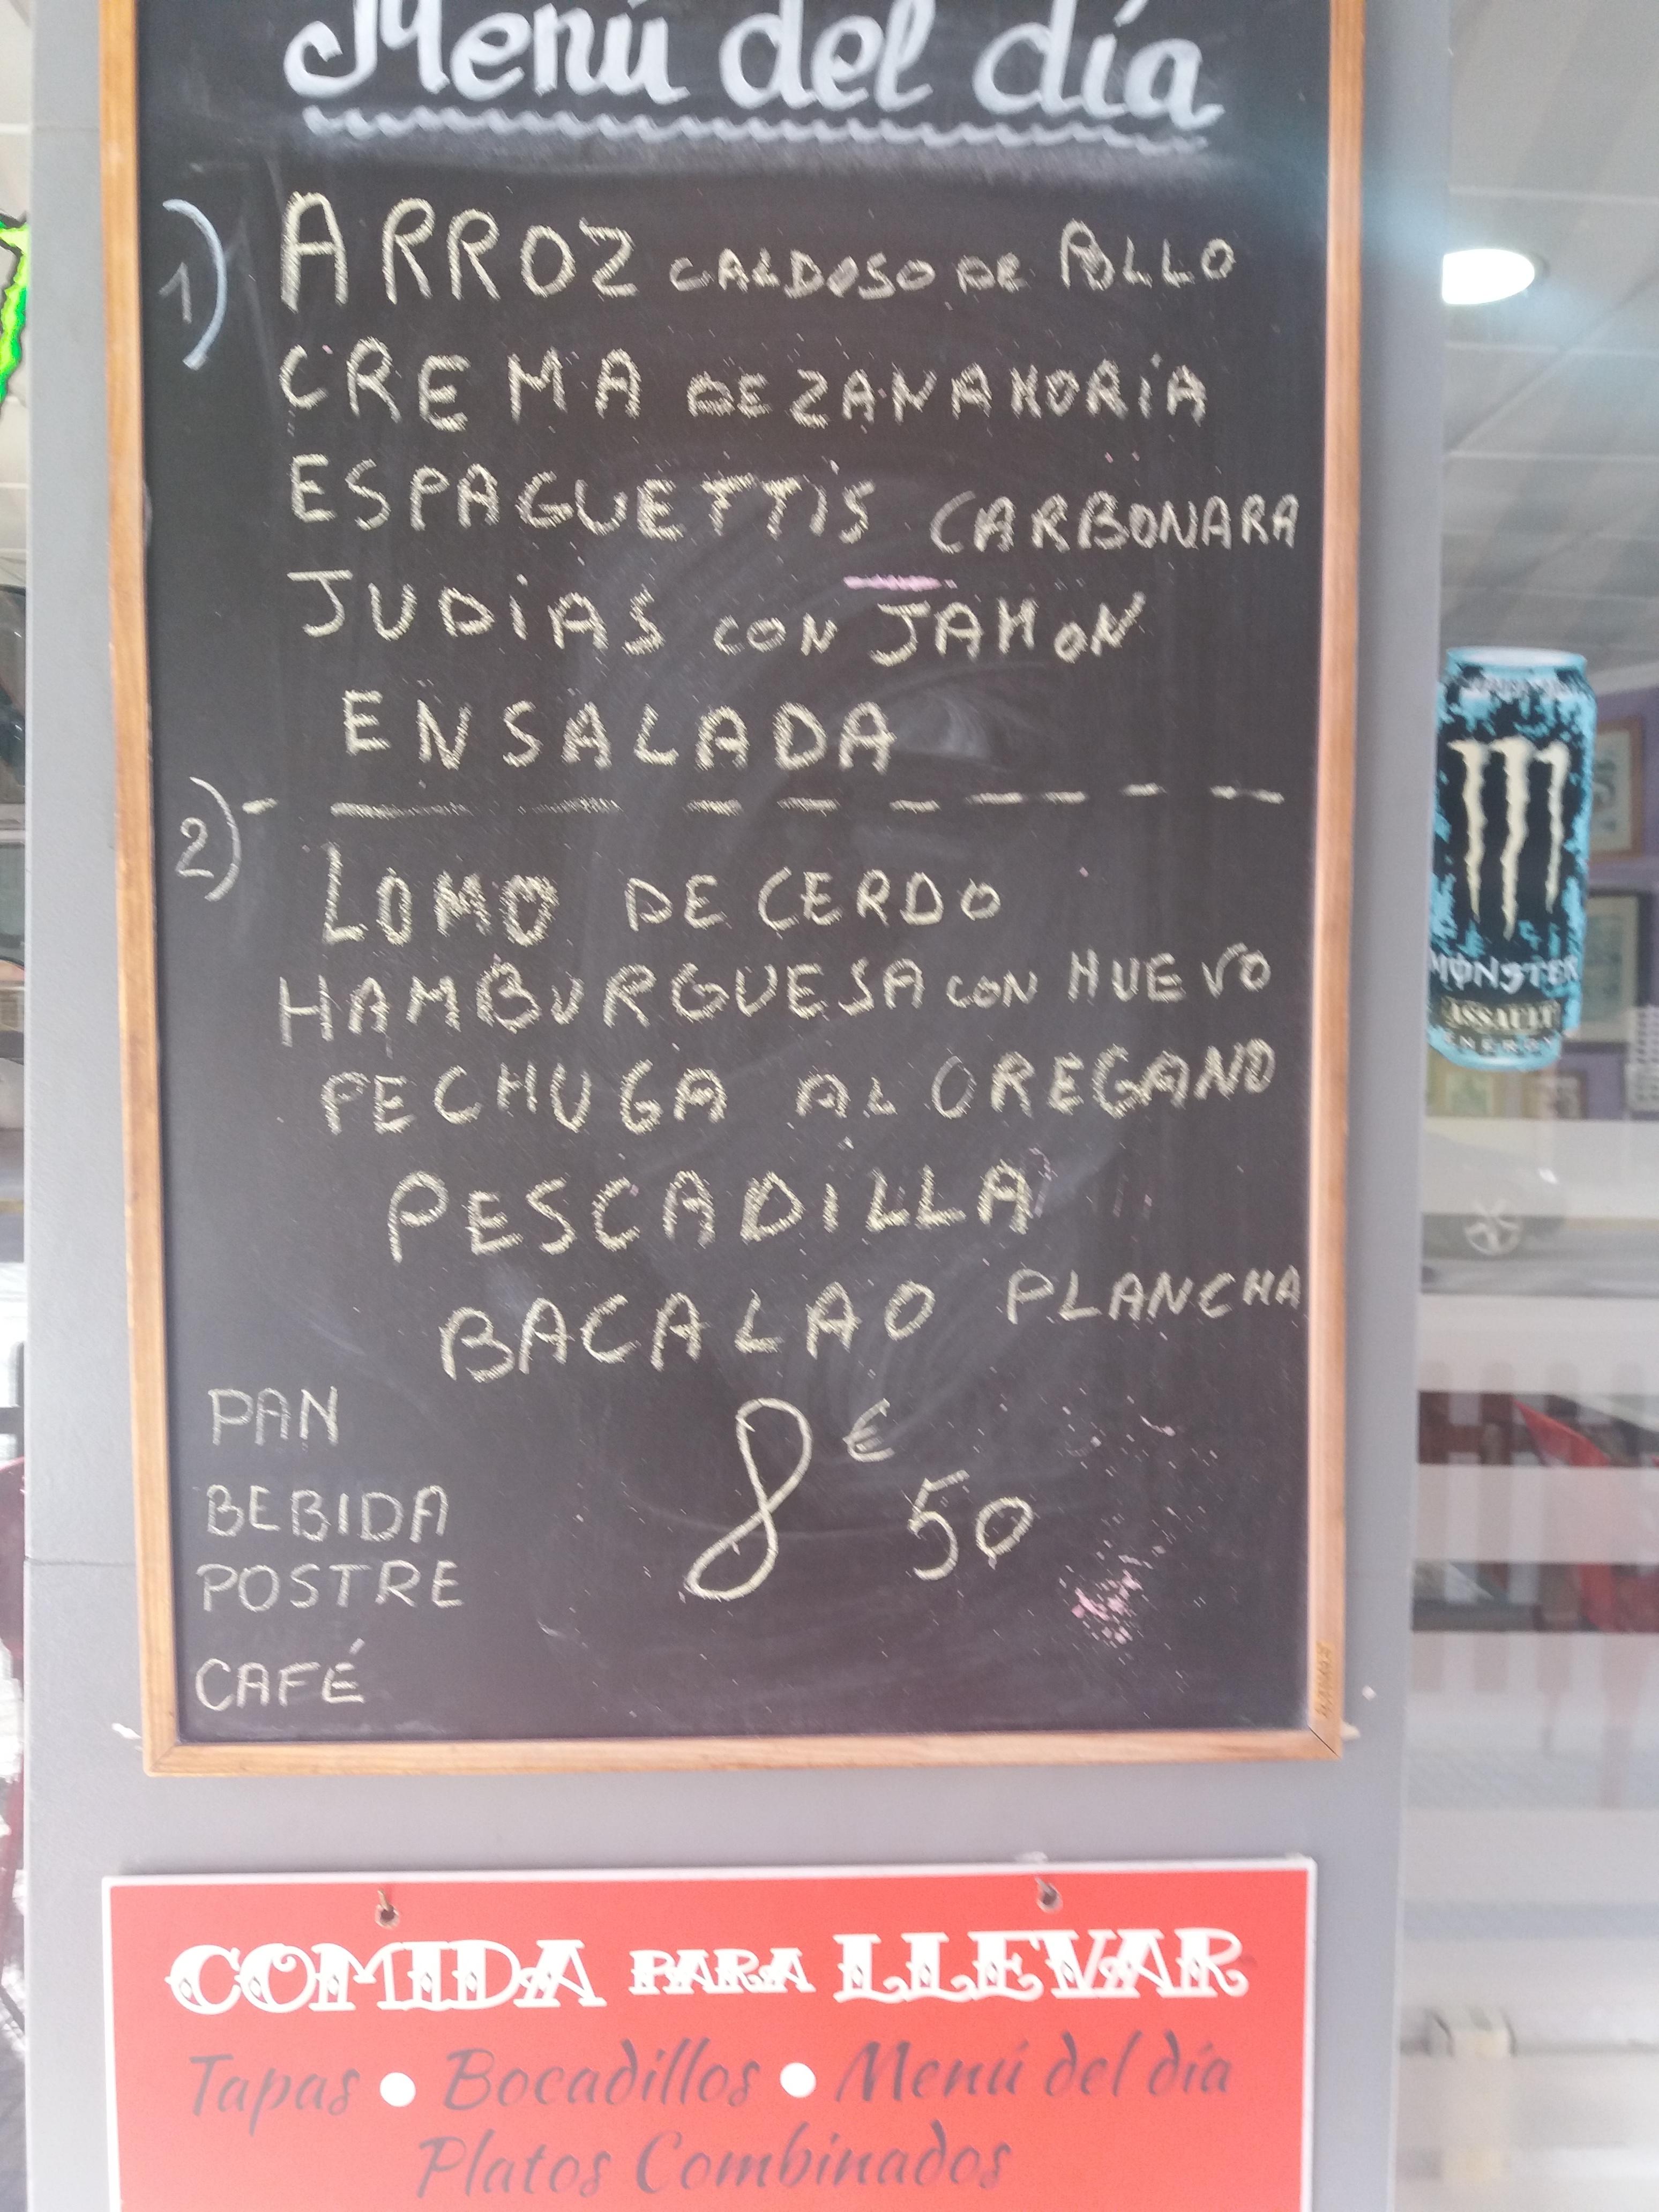 Menú del día
1) ARROZ CALDOSO DE POLLO
CREMA DE ZANAHORIA
ESPAGUETTIS CARBONARA
JUDIAS CON JAMON
ENSALADA
2)
LOMO DE CERDO
HAMBURGUESA CON HUEVO
PECHUGA AL OREGANO
PESCADILLA
BACALAO PLANCHA
PAN
8€50
BEBIDA
POSTRE
CAFÉ
COMIDA PARA LLEVAR
Tapas • Bocadillos • Menú del día
Platos Combinados
MONSTER
ASSAULT
ENERGY